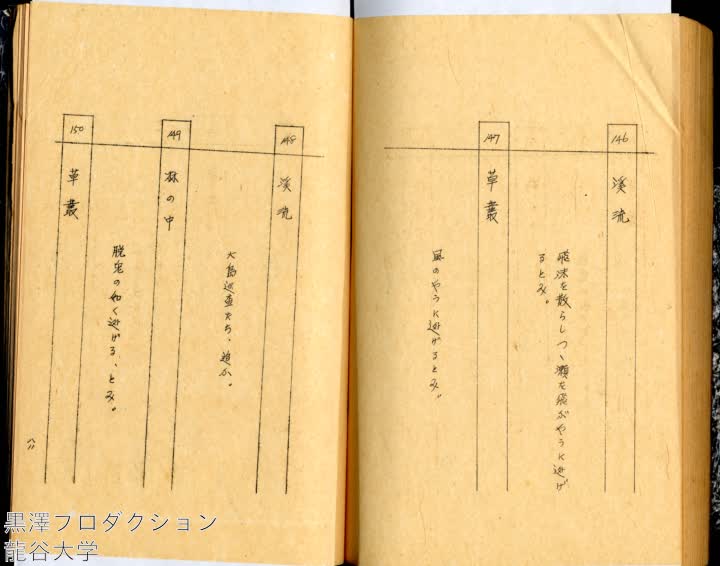 146
溪流
飛沫を散らしつゝ瀬を飛ぶやうに逃げ
るとみ。
147
草叢
風のやうに逃げるとみ。
148
溪流
大島巡査たち、追ふ。
149
林の中
脱兎の如く逃げる、とみ。
150
草叢
黒澤プロダクション
龍谷大学